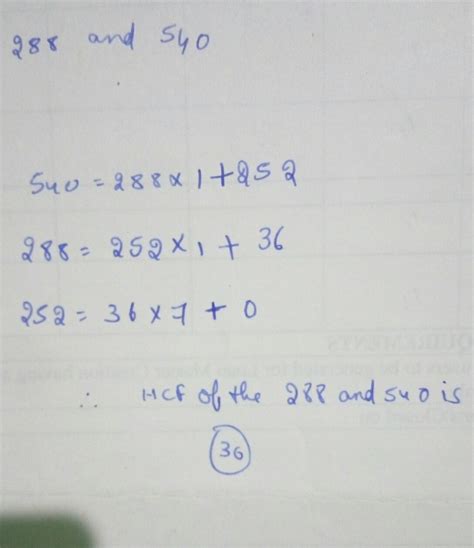 288 and 540
540 = 288 × 1 + 252
288 = 252 × 1 + 36
252 = 36 × 7 + 0
∴ HCF of the 288 and 540 is
36